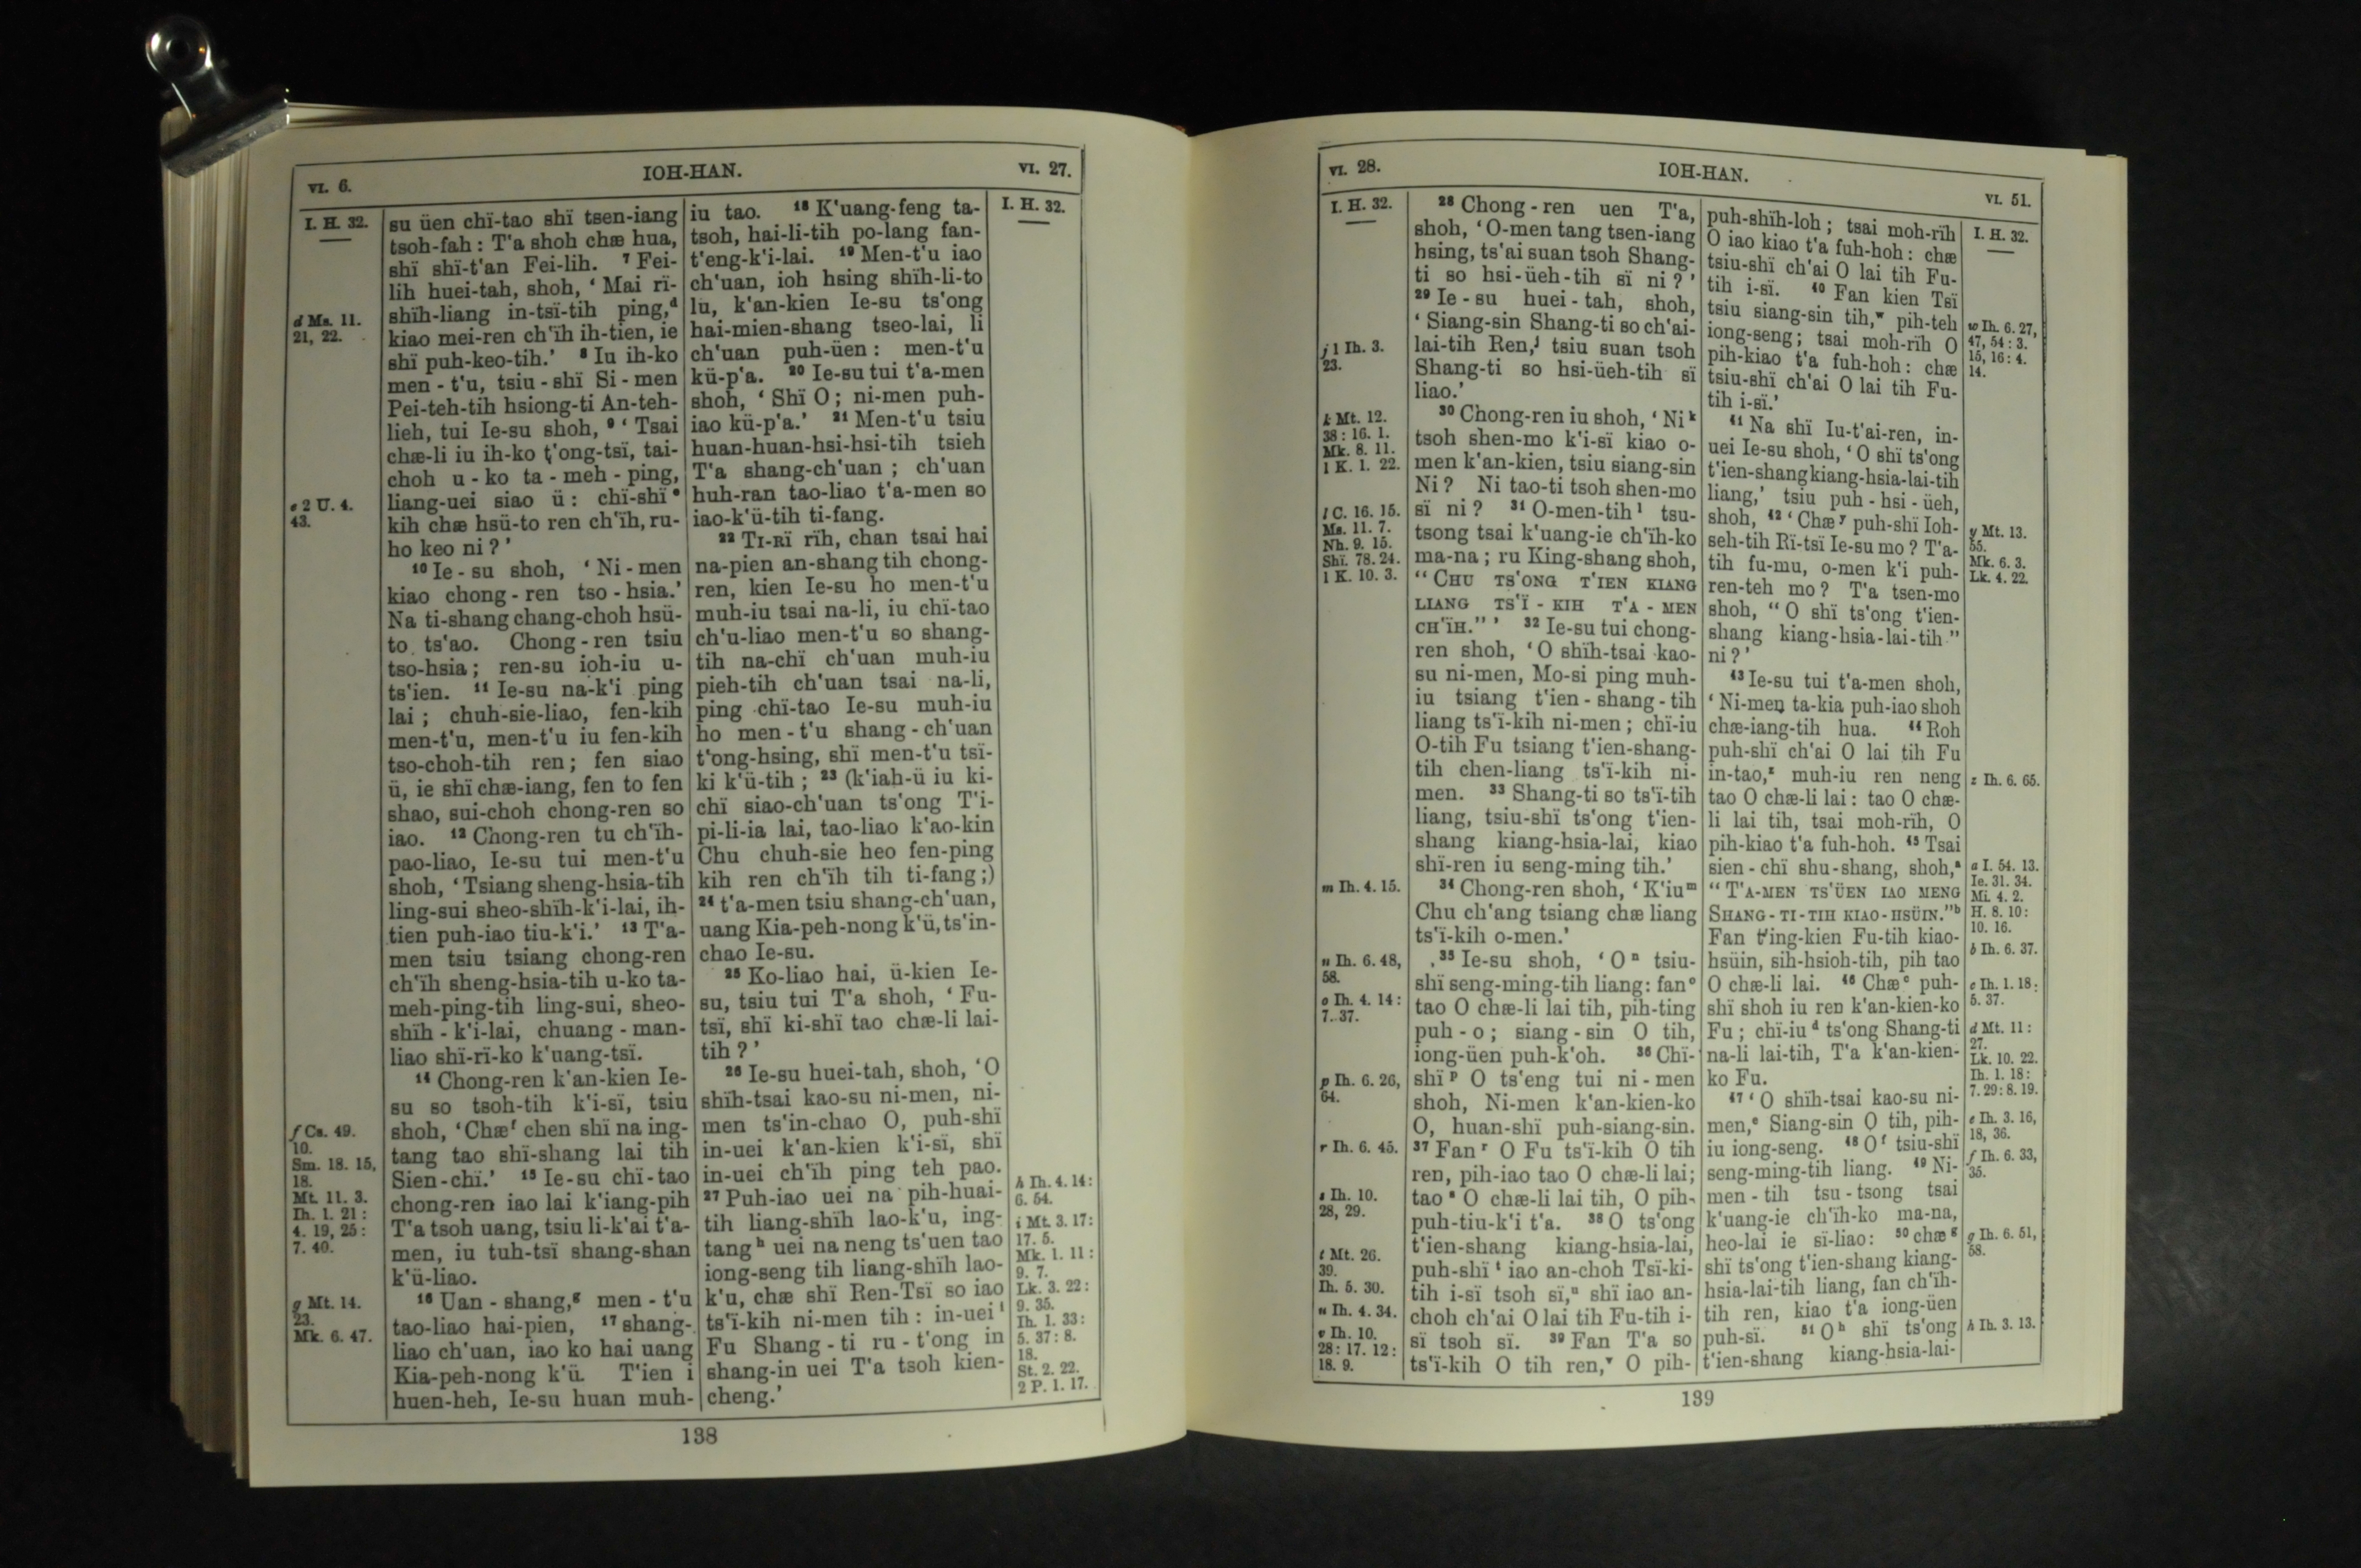 VI. 6.
IOH-HAN.
VI. 27.
I. H. 32.
d Ma. 11.
21, 22.
e 2 U. 4.
43.
f Cs. 49.
10.
Sm. 18. 15,
18.
Mt. 11. 3.
Ih. 1. 21 :
4. 19, 25 :
7. 40.
g Mt. 14.
23.
Mk. 6. 47.
su üen chï-tao shï tsen-iang
tsoh-fah : T'a shoh chæ hua,
shï shï-t'an Fei-lih. 7 Fei-
lih huei-tah, shoh, ‘ Mai rï-
shïh-liang in-tsï-tih ping,d
kiao mei-ren ch'ïh ih-tien, ie
shï puh-keo-tih.’ 8 Iu ih-ko
men - t'u, tsiu - shï Si - men
Pei-teh-tih hsiong-ti An-teh-
lieh, tui Ie-su shoh, 9 ‘ Tsai
chæ-li iu ih-ko t'ong-tsï, tai-
choh u - ko ta - meh - ping,
liang-uei siao ü : chï-shï e
kih chæ hsü-to ren ch'ïh, ru-
ho keo ni ? ’
10 Ie - su shoh, ‘ Ni - men
kiao chong - ren tso - hsia.’
Na ti-shang chang-choh hsü-
to ts'ao. Chong - ren tsiu
tso-hsia ; ren-su ioh-iu u-
ts'ien. 11 Ie-su na-k'i ping
lai ; chuh-sie-liao, fen-kih
men-t'u, men-t'u iu fen-kih
tso-choh-tih ren ; fen siao
ü, ie shï chæ-iang, fen to fen
shao, sui-choh chong-ren so
iao. 12 Chong-ren tu ch'ïh-
pao-liao, Ie-su tui men-t'u
shoh, ‘ Tsiang sheng-hsia-tih
ling-sui sheo-shïh-k'i-lai, ih-
tien puh-iao tiu-k'i.’ 13 T'a-
men tsiu tsiang chong-ren
ch'ïh sheng-hsia-tih u-ko ta-
meh-ping-tih ling-sui, sheo-
shïh - k'i-lai, chuang - man-
liao shï-rï-ko k'uang-tsï.
14 Chong-ren k'an-kien Ie-
su so tsoh-tih k'i-sï, tsiu
shoh, ‘Chæ f chen shï na ing-
tang tao shï-shang lai tih
Sien-chï.’ 15 Ie-su chï-tao
chong-ren iao lai k'iang-pih
T'a tsoh uang, tsiu li-k'ai t'a-
men, iu tuh-tsï shang-shan
k'ü-liao.
16 Uan - shang,g men - t'u
tao-liao hai-pien, 17 shang-
liao ch'uan, iao ko hai uang
Kia-peh-nong k'ü. T'ien i
huen-heh, Ie-su huan muh-
iu tao. 18 K'uang-feng ta-
tsoh, hai-li-tih po-lang fan-
t'eng-k'i-lai. 19 Men-t'u iao
ch'uan, ioh hsing shïh-li-to
lu, k'an-kien Ie-su ts'ong
hai-mien-shang tseo-lai, li
ch'uan puh-üen : men-t'u
kü-p'a. 20 Ie-su tui t'a-men
shoh, ‘ Shï O ; ni-men puh-
iao kü-p'a.’ 21 Men-t'u tsiu
huan-huan-hsi-hsi-tih tsieh
T'a shang-ch'uan ; ch'uan
huh-ran tao-liao t'a-men so
iao-k'ü-tih ti-fang.
22 TI-RÏ rïh, chan tsai hai
na-pien an-shang tih chong-
ren, kien Ie-su ho men-t'u
muh-iu tsai na-li, iu chï-tao
ch'u-liao men-t'u so shang-
tih na-chï ch'uan muh-iu
pieh-tih ch'uan tsai na-li,
ping chï-tao Ie-su muh-iu
ho men - t'u shang - ch'uan
t'ong-hsing, shï men-t'u tsï-
ki k'ü-tih ; 23 (k'iah-ü iu ki-
chï siao-ch'uan ts'ong T'i-
pi-li-ia lai, tao-liao k'ao-kin
Chu chuh-sie heo fen-ping
kih ren ch'ïh tih ti-fang ;)
24 t'a-men tsiu shang-ch'uan,
uang Kia-peh-nong k'ü, ts'in-
chao Ie-su.
25 Ko-liao hai, ü-kien Ie-
su, tsiu tui T'a shoh, ‘ Fu-
tsï, shï ki-shï tao chæ-li lai-
tih ? ’
26 Ie-su huei-tah, shoh, ‘O
shïh-tsai kao-su ni-men, ni-
men ts'in-chao O, puh-shï
in-uei k'an-kien k'i-sï, shï
in-uei ch'ïh ping teh pao.
27 Puh-iao uei na pih-huai-
tih liang-shïh lao-k'u, ing-
tang h uei na neng ts'uen tao
iong-seng tih liang-shïh lao-
k'u, chæ shï Ren-Tsï so iao
ts'ï-kih ni-men tih : in-uei i
Fu Shang - ti ru - t'ong in
shang-in uei T'a tsoh kien-
cheng.’
I. H. 32.
h Ih. 4. 14 :
6. 54.
i Mt. 3. 17 :
17. 5.
Mk. 1. 11 :
9. 7.
Lk. 3. 22 :
9. 35.
Ih. 1. 33 :
5. 37 : 8.
18.
St. 2. 22.
2 P. 1. 17.
138
VI. 28.
IOH-HAN.
VI. 51.
I. H. 32.
j 1 Ih. 3.
23.
k Mt. 12.
38 : 16. 1.
Mk. 8. 11.
1 K. 1. 22.
l C. 16. 15.
Ms. 11. 7.
Nh. 9. 15.
Shï. 78. 24.
1 K. 10. 3.
m Ih. 4. 15.
n Ih. 6. 48,
58.
o Ih. 4. 14 :
7. 37.
p Ih. 6. 26,
64.
r Ih. 6. 45.
s Ih. 10.
28, 29.
t Mt. 26.
39.
Ih. 5. 30.
u Ih. 4. 34.
v Ih. 10.
28 : 17. 12 :
18. 9.
28 Chong - ren uen T'a,
shoh, ‘ O-men tang tsen-iang
hsing, ts'ai suan tsoh Shang-
ti so hsi-üeh-tih sï ni ? ’
29 Ie - su huei - tah, shoh,
‘ Siang-sin Shang-ti so ch'ai-
lai-tih Ren,j tsiu suan tsoh
Shang-ti so hsi-üeh-tih sï
liao.’
30 Chong-ren iu shoh, ‘ Ni k
tsoh shen-mo k'i-sï kiao o-
men k'an-kien, tsiu siang-sin
Ni ? Ni tao-ti tsoh shen-mo
sï ni ? 31 O-men-tih l tsu-
tsong tsai k'uang-ie ch'ïh-ko
ma-na ; ru King-shang shoh,
“ CHU TS'ONG T'IEN KIANG
LIANG TS'Ï - KIH T'A - MEN
CH'ÏH.” ’ 32 Ie-su tui chong-
ren shoh, ‘ O shïh-tsai kao-
su ni-men, Mo-si ping muh-
iu tsiang t'ien - shang - tih
liang ts'ï-kih ni-men ; chï-iu
O-tih Fu tsiang t'ien-shang-
tih chen-liang ts'ï-kih ni-
men. 33 Shang-ti so ts'ï-tih
liang, tsiu-shï ts'ong t'ien-
shang kiang-hsia-lai, kiao
shï-ren iu seng-ming tih.’
34 Chong-ren shoh, ‘ K'iu m
Chu ch'ang tsiang chæ liang
ts'ï-kih o-men.’
35 Ie-su shoh, ‘ O n tsiu-
shï seng-ming-tih liang : fan o
tao O chæ-li lai tih, pih-ting
puh - o ; siang - sin O tih,
iong-üen puh-k'oh. 36 Chï-
shï p O ts'eng tui ni - men
shoh, Ni-men k'an-kien-ko
O, huan-shï puh-siang-sin.
37 Fan r O Fu ts'ï-kih O tih
ren, pih-iao tao O chæ-li lai ;
tao s O chæ-li lai tih, O pih-
puh-tiu-k'i t'a. 38 O ts'ong
t'ien-shang kiang-hsia-lai,
puh-shï t iao an-choh Tsï-ki-
tih i-sï tsoh sï,u shï iao an-
choh ch'ai O lai tih Fu-tih i-
sï tsoh sï. 39 Fan T'a so
ts'ï-kih O tih ren,v O pih-
puh-shïh-loh ; tsai moh-rïh
O iao kiao t'a fuh-hoh : chæ
tsiu-shï ch'ai O lai tih Fu-
tih i-sï. 40 Fan kien Tsï
tsiu siang-sin tih,w pih-teh
iong-seng ; tsai moh-rïh O
pih-kiao t'a fuh-hoh : chæ
tsiu-shï ch'ai O lai tih Fu-
tih i-sï.’
41 Na shï Iu-t'ai-ren, in-
uei Ie-su shoh, ‘ O shï ts'ong
t'ien-shang kiang-hsia-lai-tih
liang,’ tsiu puh - hsi - üeh,
shoh, 42 ‘ Chæ y puh-shï Ioh-
seh-tih Rï-tsï Ie-su mo ? T'a-
tih fu-mu, o-men k'i puh-
ren-teh mo ? T'a tsen-mo
shoh, “ O shï ts'ong t'ien-
shang kiang-hsia-lai-tih ”
ni ? ’
43 Ie-su tui t'a-men shoh,
‘ Ni-men ta-kia puh-iao shoh
chæ-iang-tih hua. 44 Roh
puh-shï ch'ai O lai tih Fu
in-tao,z muh-iu ren neng
tao O chæ-li lai : tao O chæ-
li lai tih, tsai moh-rïh, O
pih-kiao t'a fuh-hoh. 45 Tsai
sien - chï shu-shang, shoh,a
“ T'A-MEN TS'ÜEN IAO MENG
SHANG - TI - TIH KIAO - HSÜIN.” b
Fan t'ing-kien Fu-tih kiao-
hsüin, sih-hsioh-tih, pih tao
O chæ-li lai. 46 Chæ c puh-
shï shoh iu ren k'an-kien-ko
Fu ; chï-iu d ts'ong Shang-ti
na-li lai-tih, T'a k'an-kien-
ko Fu.
47 ‘ O shïh-tsai kao-su ni-
men,e Siang-sin O tih, pih-
iu iong-seng. 48 O f tsiu-shï
seng-ming-tih liang. 49 Ni-
men - tih tsu - tsong tsai
k'uang-ie ch'ïh-ko ma-na,
heo-lai ie sï-liao : 50 chæ g
shï ts'ong t'ien-shang kiang-
hsia-lai-tih liang, fan ch'ïh-
tih ren, kiao t'a iong-üen
puh-sï. 51 O h shï ts'ong
t'ien-shang kiang-hsia-lai-
I. H. 32.
w Ih. 6. 27,
47, 54 : 3.
15, 16 : 4.
14.
y Mt. 13.
55.
Mk. 6. 3.
Lk. 4. 22.
z Ih. 6. 65.
a I. 54. 13.
Ie. 31. 34.
Mi. 4. 2.
H. 8. 10 :
10. 16.
b Ih. 6. 37.
c Ih. 1. 18 :
5. 37.
d Mt. 11 :
27.
Lk. 10. 22.
Ih. 1. 18 :
7. 29 : 8. 19.
e Ih. 3. 16,
18, 36.
f Ih. 6. 33,
35.
g Ih. 6. 51,
58.
h Ih. 3. 13.
139